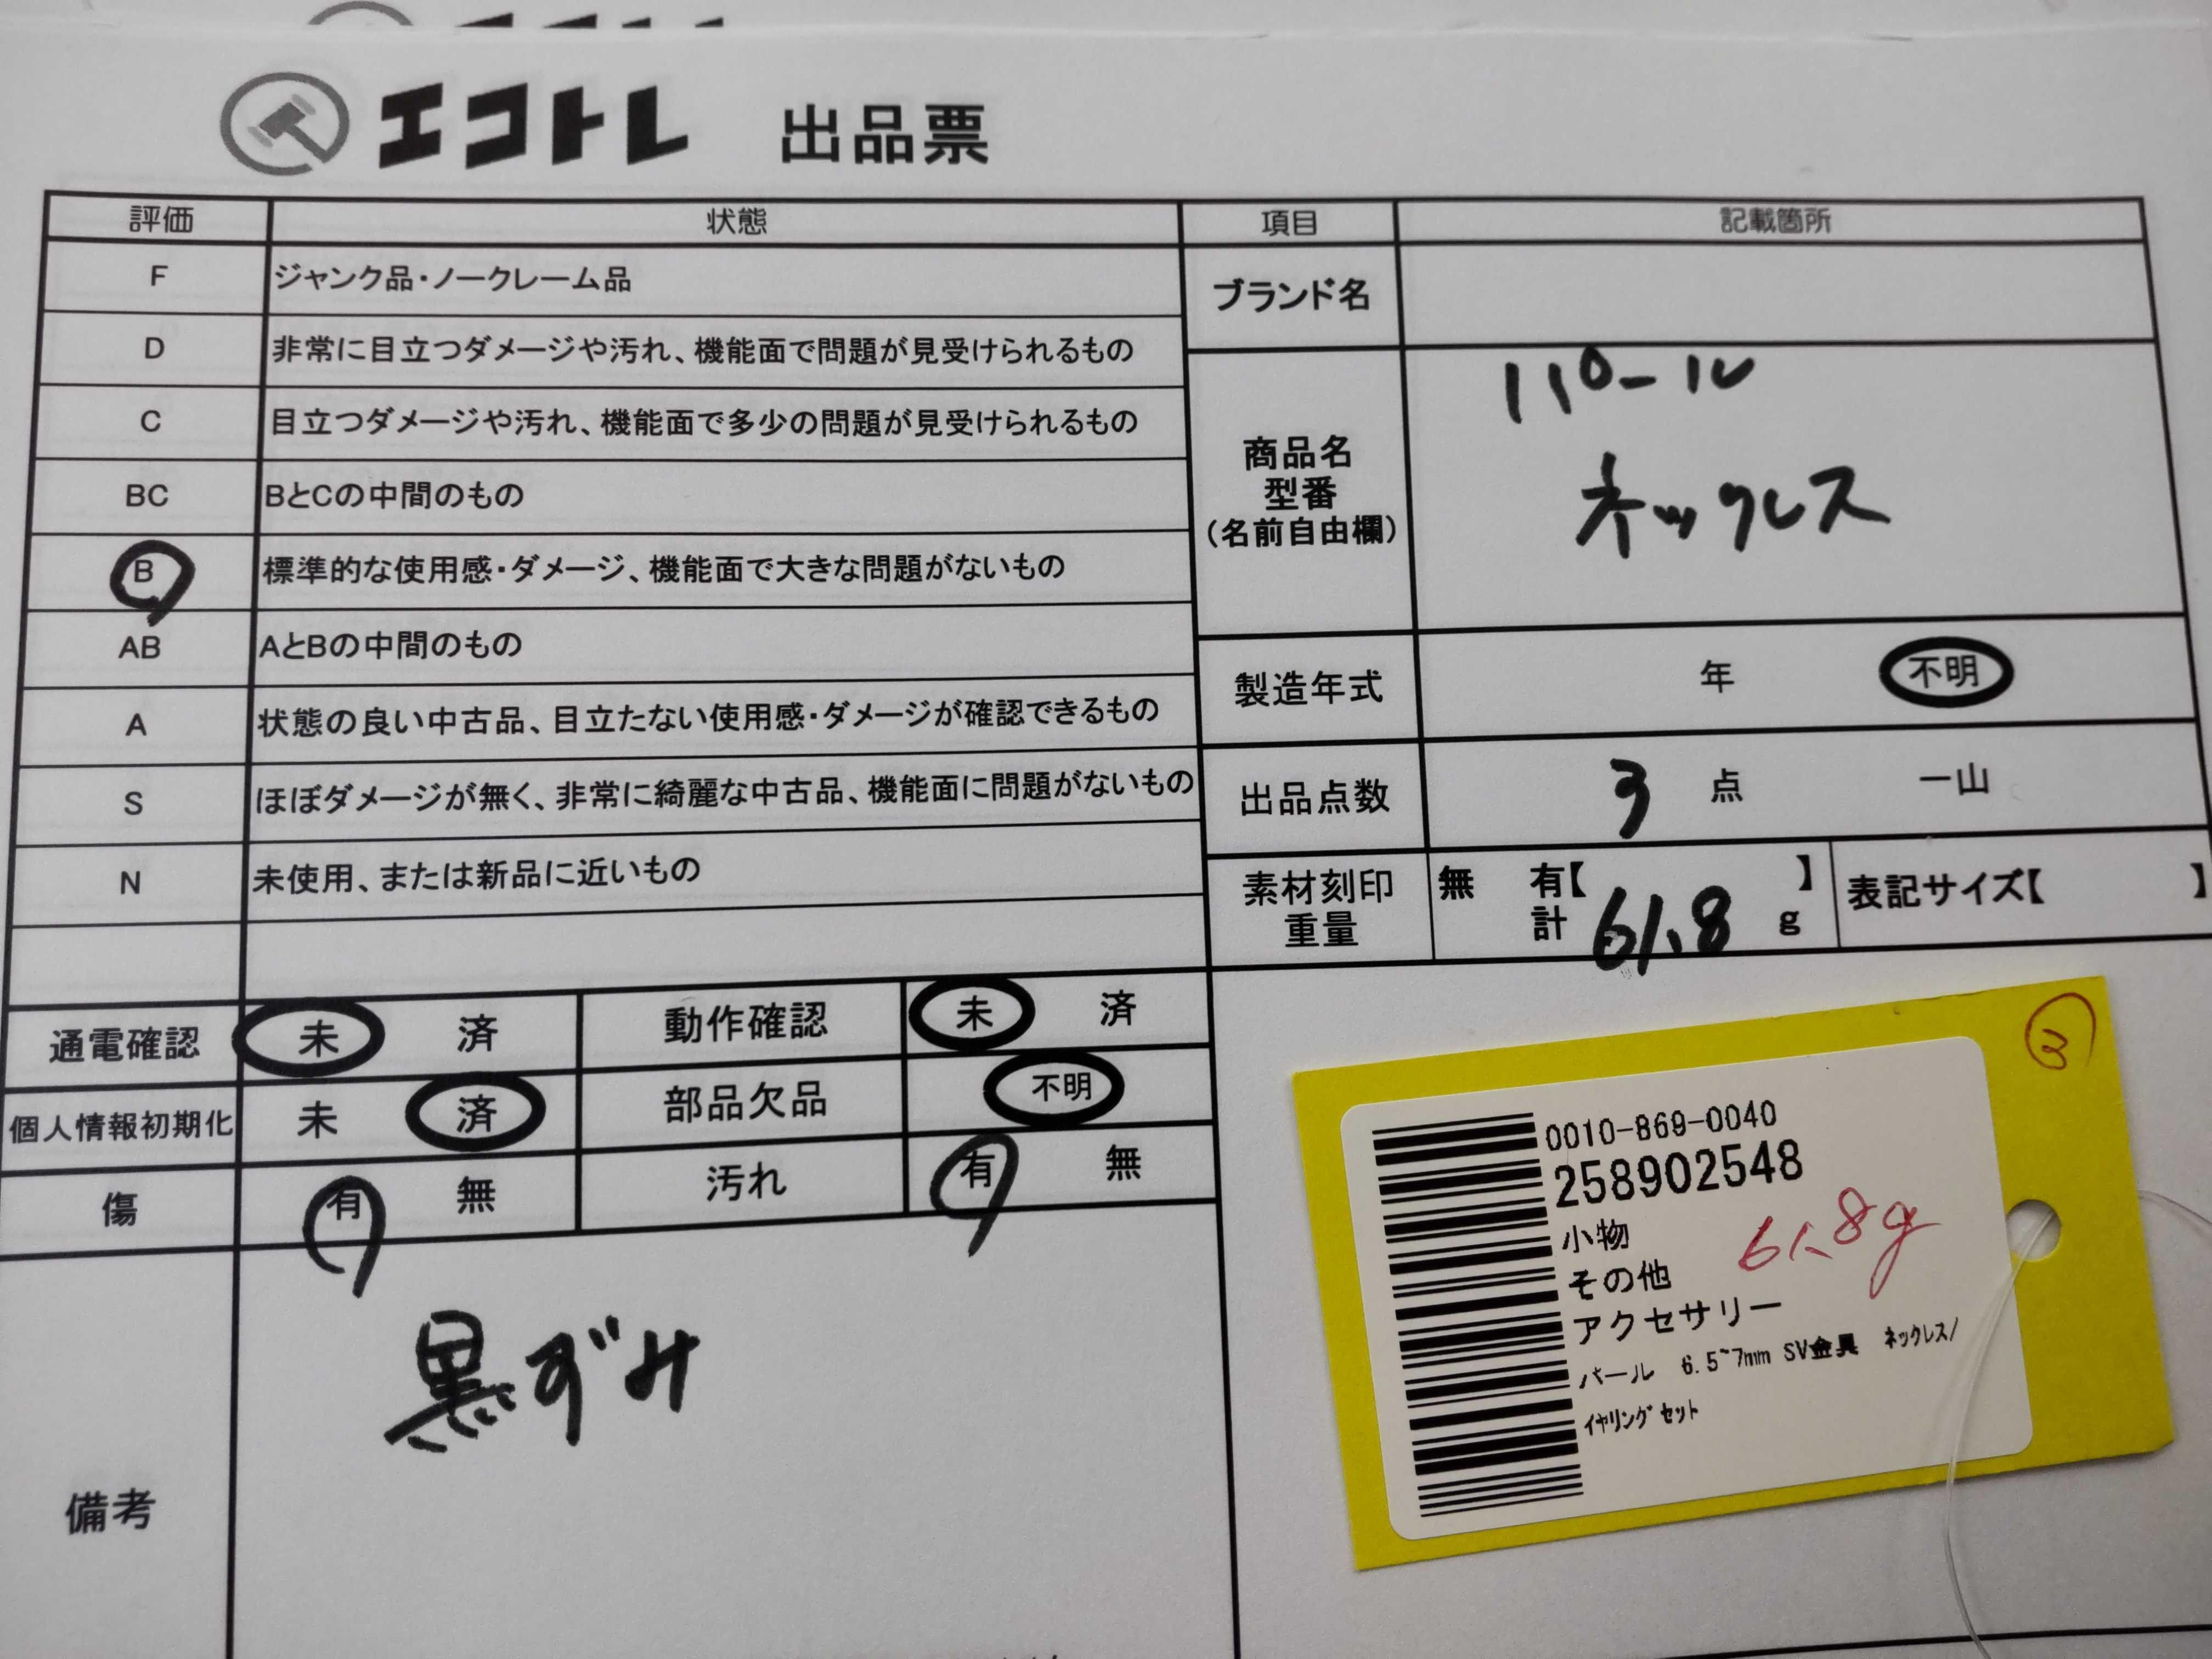 エコトレ 出品票
評価 状態 項目 記載箇所
F ジャンク品・ノークレーム品
D 非常に目立つダメージや汚れ、機能面で問題が見受けられるもの
C 目立つダメージや汚れ、機能面で多少の問題が見受けられるもの
BC BとCの中間のもの
B 標準的な使用感・ダメージ、機能面で大きな問題がないもの
AB AとBの中間のもの
A 状態の良い中古品、目立たない使用感・ダメージが確認できるもの
S ほぼダメージが無く、非常に綺麗な中古品、機能面に問題がないもの
N 未使用、または新品に近いもの
ブランド名
商品名
型番
(名前自由欄)
パール
ネックレス
製造年式 年 不明
出品点数 3 点 一山
素材刻印
重量
無 有【 】
計 61.8 g
表記サイズ【 】
通電確認 未 済 動作確認 未 済
個人情報初期化 未 済 部品欠品 不明
傷 有 無 汚れ 有 無
備考
黒ずみ
3
0010-869-0040
258902548
小物
その他
61.8g
アクセサリー
パール 6.5~7mm SV金具 ネックレス/
イヤリングセット